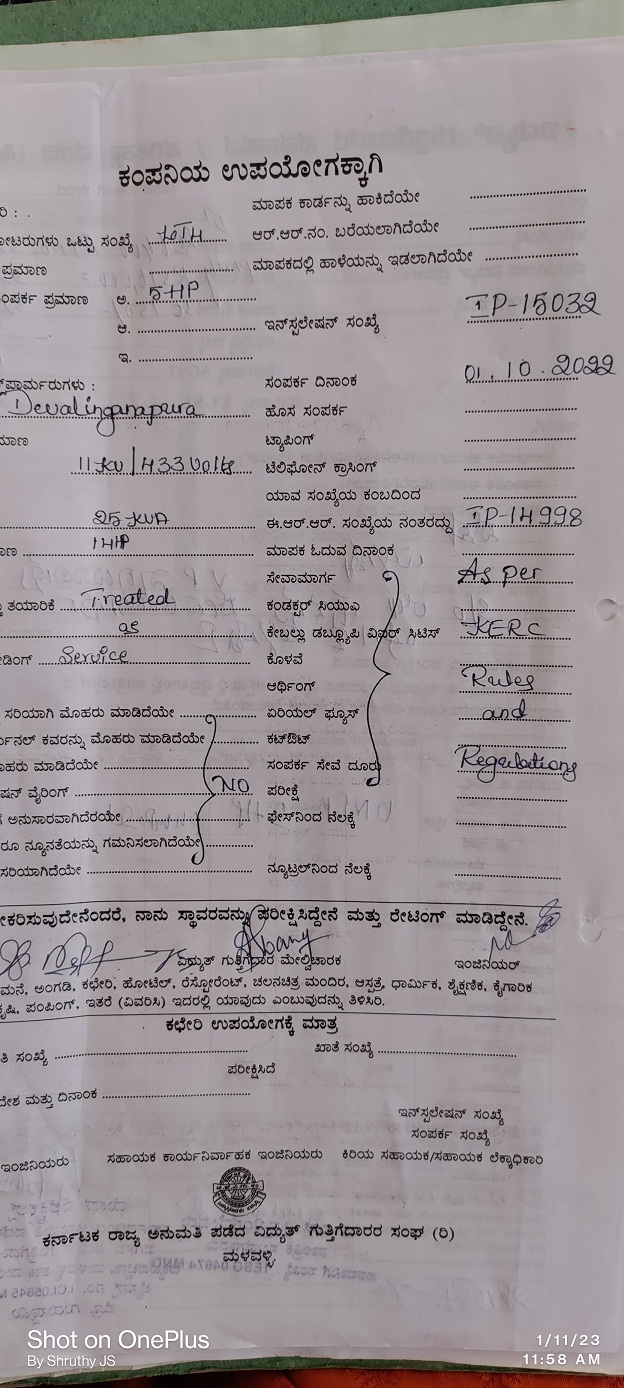 ಕಂಪನಿಯ ಉಪಯೋಗಕ್ಕಾಗಿ
ರಿ : . ಮಾಪಕ ಕಾರ್ಡನ್ನು ಹಾಕಿದೆಯೇ
ೋಟರುಗಳು ಒಟ್ಟು ಸಂಖ್ಯೆ ಆರ್.ಆರ್.ನಂ. ಬರೆಯಲಾಗಿದೆಯೇ
ಪ್ರಮಾಣ ಮಾಪಕದಲ್ಲಿ ಹಾಳೆಯನ್ನು ಇಡಲಾಗಿದೆಯೇ
ಂಪರ್ಕ ಪ್ರಮಾಣ ಅ. 5HP
ಆ. ಇನ್‌ಸ್ಟಲೇಷನ್ ಸಂಖ್ಯೆ IP-15032
ಇ.
ಪಾರ್ಮರುಗಳು : ಸಂಪರ್ಕ ದಿನಾಂಕ 01.10.2022
Devalinganapura ಹೊಸ ಸಂಪರ್ಕ
ಮಾಣ ಟ್ಯಾಪಿಂಗ್
11 KV/433 Volts ಟೆಲಿಫೋನ್ ಕ್ರಾಸಿಂಗ್
ಯಾವ ಸಂಖ್ಯೆಯ ಕಂಬದಿಂದ
25 KVA ಈ.ಆರ್.ಆರ್. ಸಂಖ್ಯೆಯ ನಂತರದ್ದು IP-14998
ಾಣ ಮಾಪಕ ಓದುವ ದಿನಾಂಕ
ಸೇವಾಮಾರ್ಗ As per
ತಯಾರಿಕೆ Treated ಕಂಡಕ್ಟರ್ ಸಿಯುಎ
as ಕೇಬಲ್ಲು ಡಬ್ಲ್ಯೂಪಿ ವಿಐರ್ ಸಿಟಿಸ್ KERC
ಡಿಂಗ್ Service ಕೊಳವೆ
ಆರ್ಥಿಂಗ್ Rules
ಸರಿಯಾಗಿ ಮೊಹರು ಮಾಡಿದೆಯೇ ಏರಿಯಲ್ ಫ್ಯೂಸ್ and
ರ್ಮಿನಲ್ ಕವರನ್ನು ಮೊಹರು ಮಾಡಿದೆಯೇ ಕಟ್‌ಔಟ್
ೊಹರು ಮಾಡಿದೆಯೇ ಸಂಪರ್ಕ ಸೇವೆ ದೂರು Regulations
ಷನ್ ವೈರಿಂಗ್ NO ಪರೀಕ್ಷೆ
ಅನುಸಾರವಾಗಿದೆರಯೇ ಫೇಸ್‌ನಿಂದ ನೆಲಕ್ಕೆ
ರೂ ನ್ಯೂನತೆಯನ್ನು ಗಮನಿಸಲಾಗಿದೆಯೇ
ಸರಿಯಾಗಿದೆಯೇ ನ್ಯೂಟ್ರಲ್‌ನಿಂದ ನೆಲಕ್ಕೆ
ೀಕರಿಸುವುದೇನೆಂದರೆ, ನಾನು ಸ್ಥಾವರವನ್ನು ಪರೀಕ್ಷಿಸಿದ್ದೇನೆ ಮತ್ತು ರೇಟಿಂಗ್ ಮಾಡಿದ್ದೇನೆ.
ವಿದ್ಯುತ್ ಗುತ್ತಿಗೆದಾರ ಮೇಲ್ವಿಚಾರಕ ಇಂಜಿನಿಯರ್
ಮನೆ, ಅಂಗಡಿ, ಕಛೇರಿ, ಹೋಟೆಲ್, ರೆಸ್ಟೋರೆಂಟ್, ಚಲನಚಿತ್ರ ಮಂದಿರ, ಆಸ್ಪತ್ರೆ, ಧಾರ್ಮಿಕ, ಶೈಕ್ಷಣಿಕ, ಕೈಗಾರಿಕ
ೃಷಿ, ಪಂಪಿಂಗ್, ಇತರೆ (ವಿವರಿಸಿ) ಇದರಲ್ಲಿ ಯಾವುದು ಎಂಬುವುದನ್ನು ತಿಳಿಸಿರಿ.
ಕಛೇರಿ ಉಪಯೋಗಕ್ಕೆ ಮಾತ್ರ
ತಿ ಸಂಖ್ಯೆ ಖಾತೆ ಸಂಖ್ಯೆ
ಪರೀಕ್ಷಿಸಿದೆ
ದೇಶ ಮತ್ತು ದಿನಾಂಕ
ಇನ್‌ಸ್ಟಲೇಷನ್ ಸಂಖ್ಯೆ
ಸಂಪರ್ಕ ಸಂಖ್ಯೆ
ಇಂಜಿನಿಯರು ಸಹಾಯಕ ಕಾರ್ಯನಿರ್ವಾಹಕ ಇಂಜಿನಿಯರು ಕಿರಿಯ ಸಹಾಯಕ/ಸಹಾಯಕ ಲೆಕ್ಕಾಧಿಕಾರಿ
ಕರ್ನಾಟಕ ರಾಜ್ಯ ಅನುಮತಿ ಪಡೆದ ವಿದ್ಯುತ್ ಗುತ್ತಿಗೆದಾರರ ಸಂಘ (ರಿ)
ಮಳವಳ್ಳಿ.
Shot on OnePlus
By Shruthy JS
1/11/23
11:58 AM